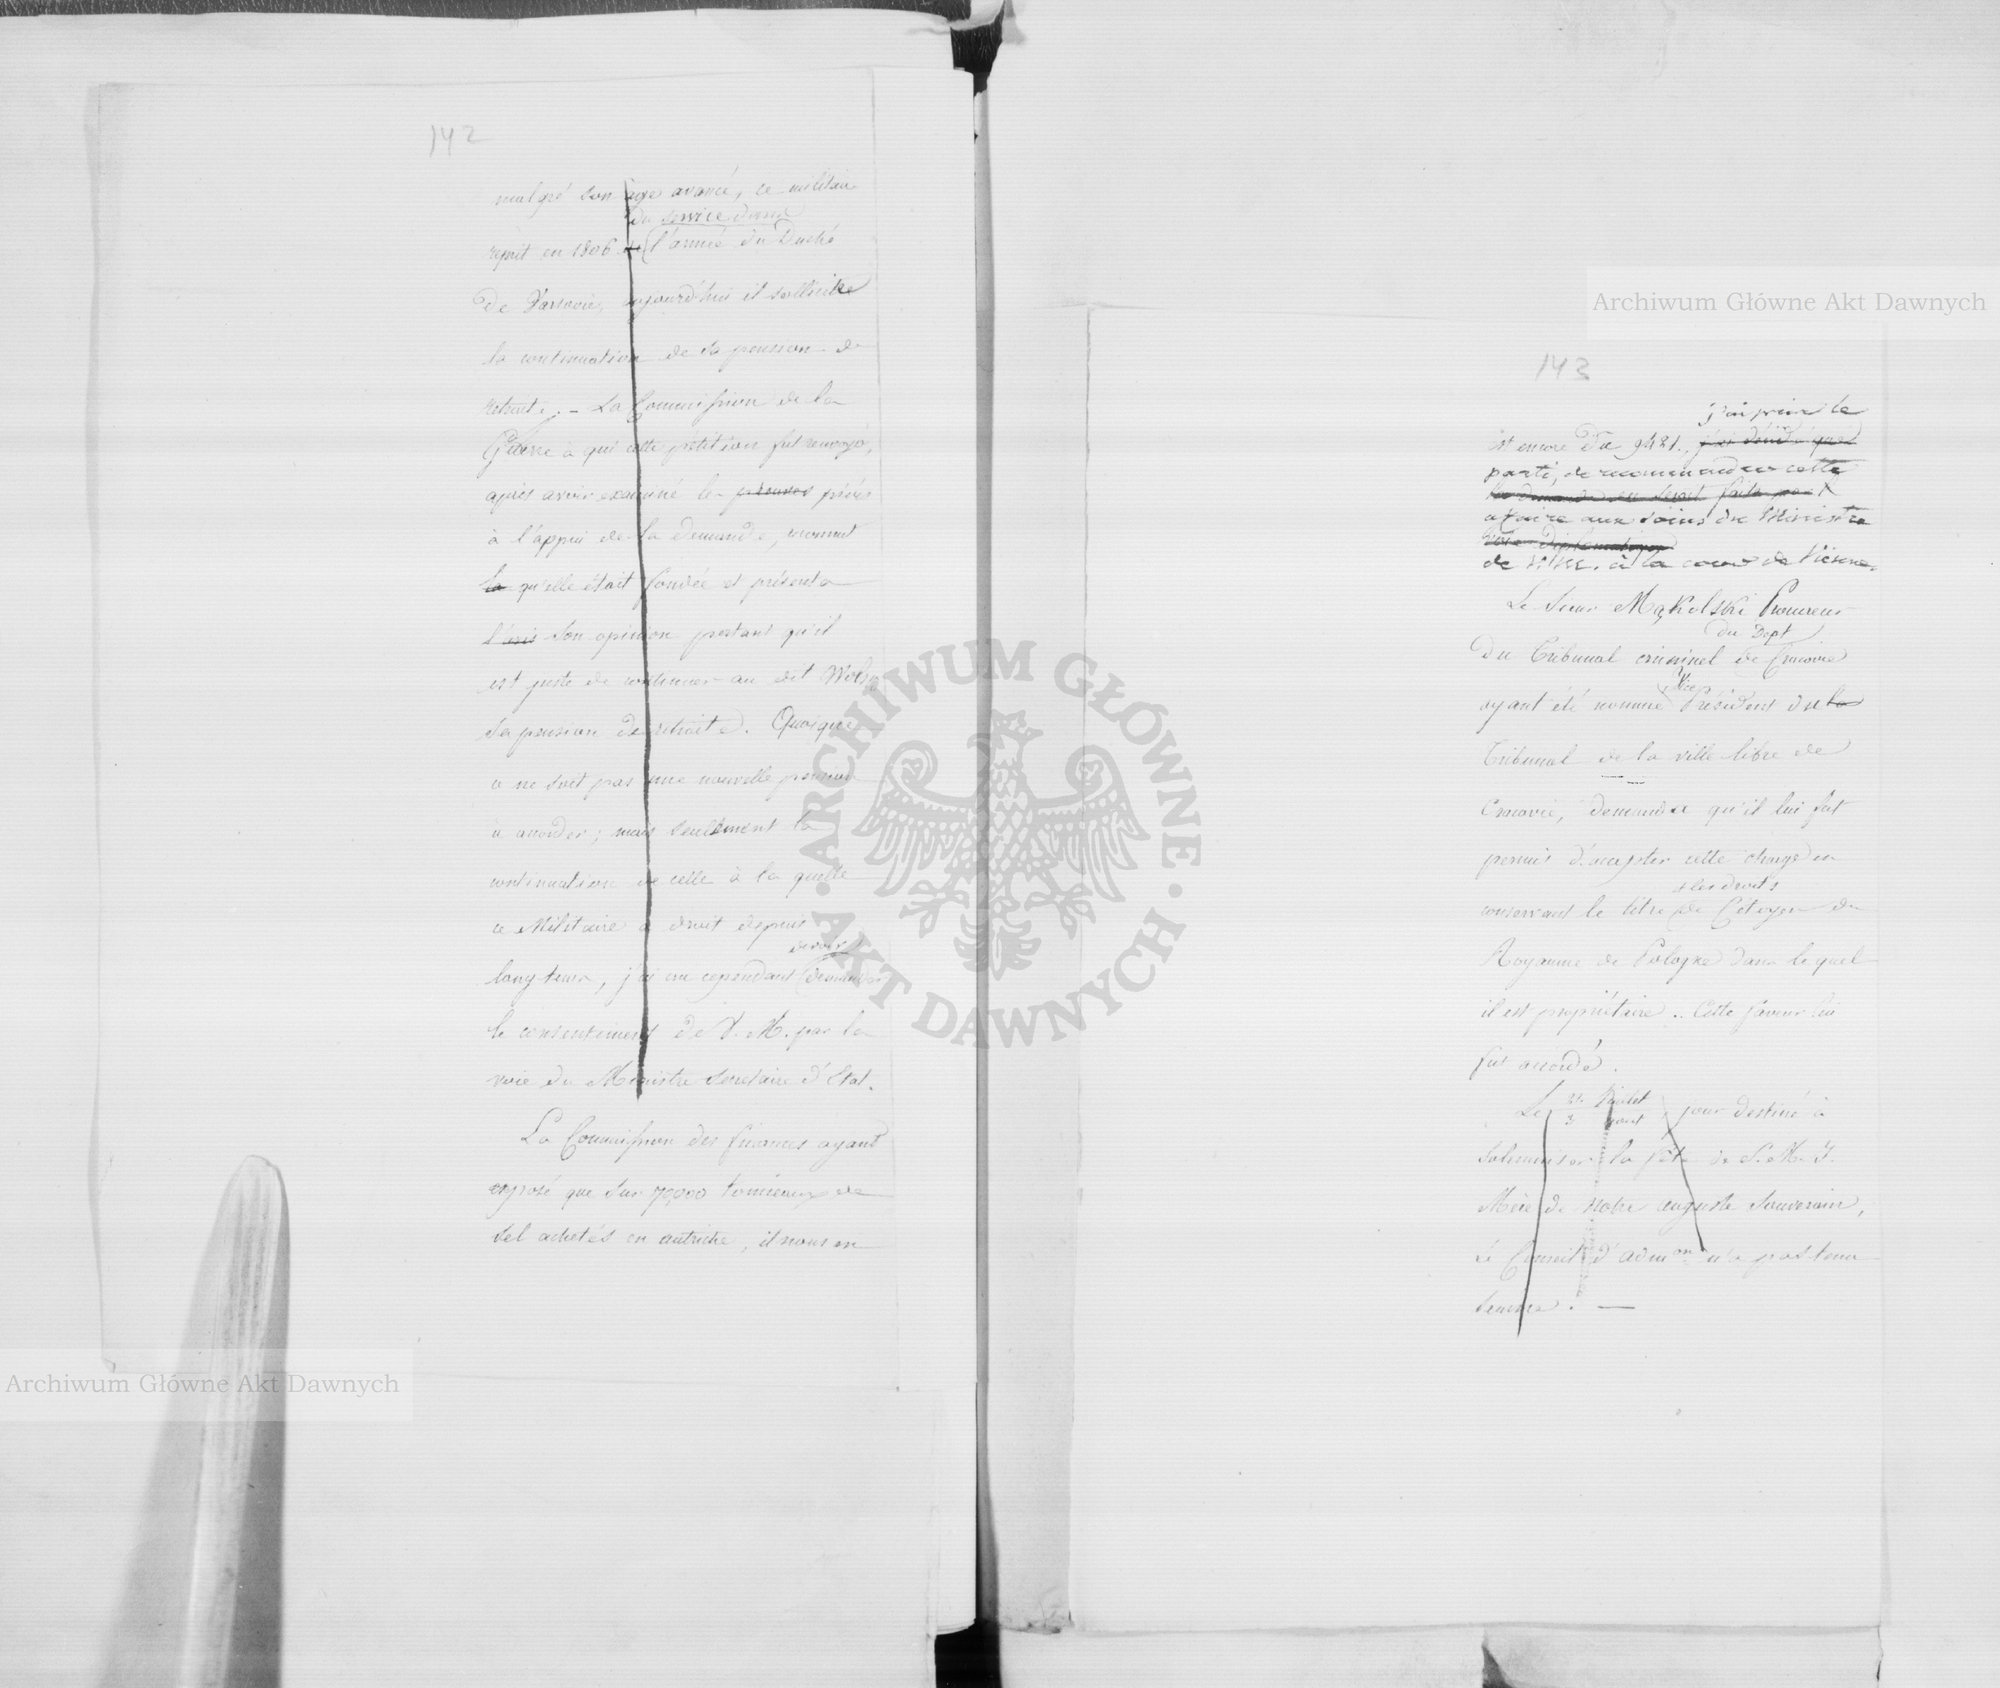 142
malgré son âge avancé, ce militaire
du service dans
reprit en 1806 l'armée du Duché
de Varsovie, aujourd'hui il sollicite
la continuation de sa pension de
retraite. – La Commission de la
Guerre à qui cette pétition fut renvoyé,
après avoir examiné les preuves pièces
à l'appui de la demande, reconnut
la qu'elle était fondée et présenta
l'avis son opinion portant qu'il
est juste de continuer au dit
sa pension de retraite. Quoique
ce ne soit pas une nouvelle pension
à accorder; mais seulement la
continuation de celle à la quelle
ce Militaire a droit depuis
devoir
longtems, j'ai cru cependant demander
le consentement de V. M. par la
voie du Ministre Secretaire d'Etat.
La Commission des finances ayant
exposé que sur 70,000 tonneaux de
sel achetés en autriche, il nous en
143
j'ai pris le
est encore du 9421.
parti, de recommander cette
la demande en serait faite par
affaire aux soins du Ministre
voie diplomatique
de à la cour de Vienne.
Le Sieur Mąkolski Procureur
du Dept
du Tribunal criminel de Cracovie
Vice
ayant été nommé Président du la
Tribunal de la ville libre de
Cracovie, demanda qu'il lui fut
permis d'accepter cette charge en
les droits
conservant le titre de Citoyen du
Royaume de Pologne dans le quel
il est propriétaire. Cette faveur lui
fut accordé.
Le jour destiné à
solemniser la fête de S. M. I.
Mère de notre auguste Souverain,
Le Conseil d'admon n'a pas tenu
seance. —
Archiwum Główne Akt Dawnych
Archiwum Główne Akt Dawnych
ARCHIWUM GŁÓWNE AKT DAWNYCH